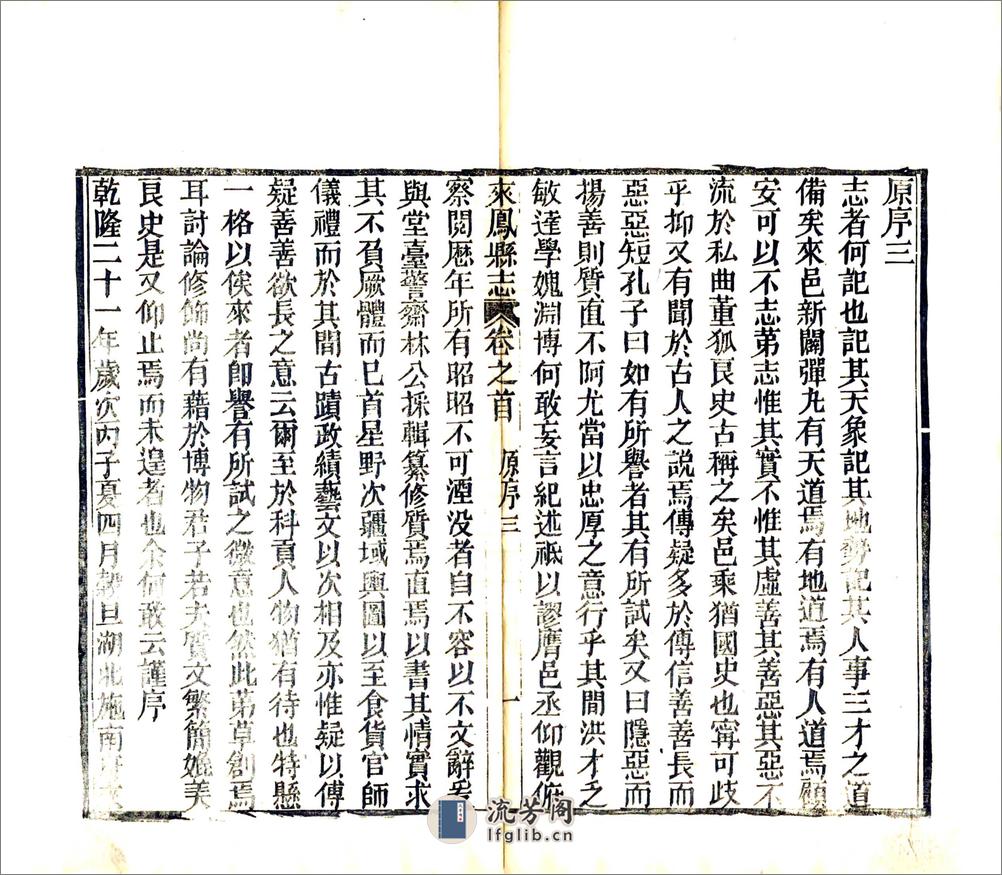 原序三
志者何記也記其天象記其地勢記其人事三才之道
備矣來邑新闢彈丸有天道焉有地道焉有人道焉顧
安可以不志第志惟其實不惟其虛善其善惡其惡不
流於私曲董狐良史古稱之矣邑乘猶國史也甯可歧
乎抑又有聞於古人之說焉傳疑多於傳信善善長而
惡惡短孔子曰如有所譽者其有所試矣又曰隱惡而
揚善則質直不阿尤當以忠厚之意行乎其間洪才乏
敏達學媿淵博何敢妄言紀述祗以謬膺邑丞仰觀俯
來鳳縣志 卷之首 原序三 一
察閱歷年所有昭昭不可湮没者自不容以不文辭爰
與堂臺警齋林公採輯纂修質焉直焉以書其情實求
其不負厥體而已首星野次疆域輿圖以至食貨官師
儀禮而於其間古蹟政績藝文以次相及亦惟疑以傳
疑善善欲長之意云爾至於科貢人物猶有待也特懸
一格以俟來者卽譽有所試之微意也然此第草創焉
耳討論修飾尚有藉於博物君子若夫質文繁簡媲美
良史是又仰止焉而未遑者也余何敢云謹序
乾隆二十一年歲次丙子夏四月穀旦湖北施南
流芳阁
lfglib.cn